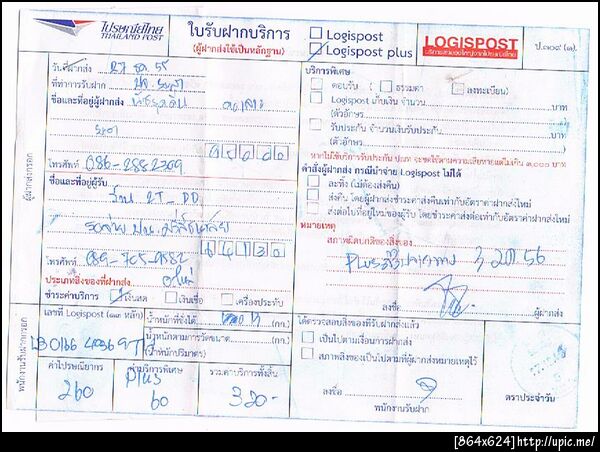 ไปรษณีย์ไทย
THAILAND POST
ใบรับฝากบริการ
(ผู้ฝากส่งใช้เป็นหลักฐาน)
Logispost
Logispost plus
LOGISPOST
บริการขนส่งของใหญ่จากไปรษณีย์ไทย
ป.๓๐๙ (๓).
วันที่ฝากส่ง 27 ธค 55
ที่ทำการรับฝาก
ชื่อและที่อยู่ผู้ฝากส่ง
โทรศัพท์ 086-2882709
ชื่อและที่อยู่ผู้รับ
ร้าน 2T-DD
โทรศัพท์ 089-765-9582
ประเภทสิ่งของที่ฝากส่ง
ชำระค่าบริการ เงินสด เงินเชื่อ เครื่องประทับ
ผู้ฝากส่งกรอก
บริการพิเศษ
ตอบรับ ( ธรรมดา ลงทะเบียน)
Logispost เก็บเงิน จำนวน บาท
(ตัวอักษร )
รับประกัน จำนวนเงินรับประกัน บาท
(ตัวอักษร )
หากไม่ใช้บริการรับประกัน ปณท จะชดใช้ตามความเสียหายแต่ไม่เกิน ๓,๐๐๐ บาท
คำสั่งผู้ฝากส่ง กรณีนำจ่าย Logispost ไม่ได้
ละทิ้ง (ไม่ต้องส่งคืน)
ส่งคืน โดยผู้ฝากส่งชำระค่าส่งคืนเท่ากับอัตราค่าฝากส่งใหม่
ส่งต่อไปที่อยู่ใหม่ของผู้รับ โดยชำระค่าส่งต่อเท่ากับอัตราค่าฝากส่งใหม่
หมายเหตุ
สภาพผิดปกติของสิ่งของ
ลงชื่อ ผู้ฝากส่ง
เลขที่ Logispost (๑๓ หลัก)
น้ำหนักที่ชั่งได้ (กก.)
น้ำหนักตามการวัดขนาด (กก.)
(น้ำหนักปริมาตร)
ค่าไปรษณียากร
260
ค่าบริการพิเศษ
Plus
60
รวมค่าบริการทั้งสิ้น
320.-
พนักงานรับฝากกรอก
ได้ตรวจสอบสิ่งของที่รับฝากส่งแล้ว
เป็นไปตามเงื่อนการฝากส่ง
สภาพสิ่งของเป็นไปตามที่ผู้ฝากส่งหมายเหตุไว้
ลงชื่อ
พนักงานรับฝาก
ตราประจำวัน
[864x624]http://upic.me/